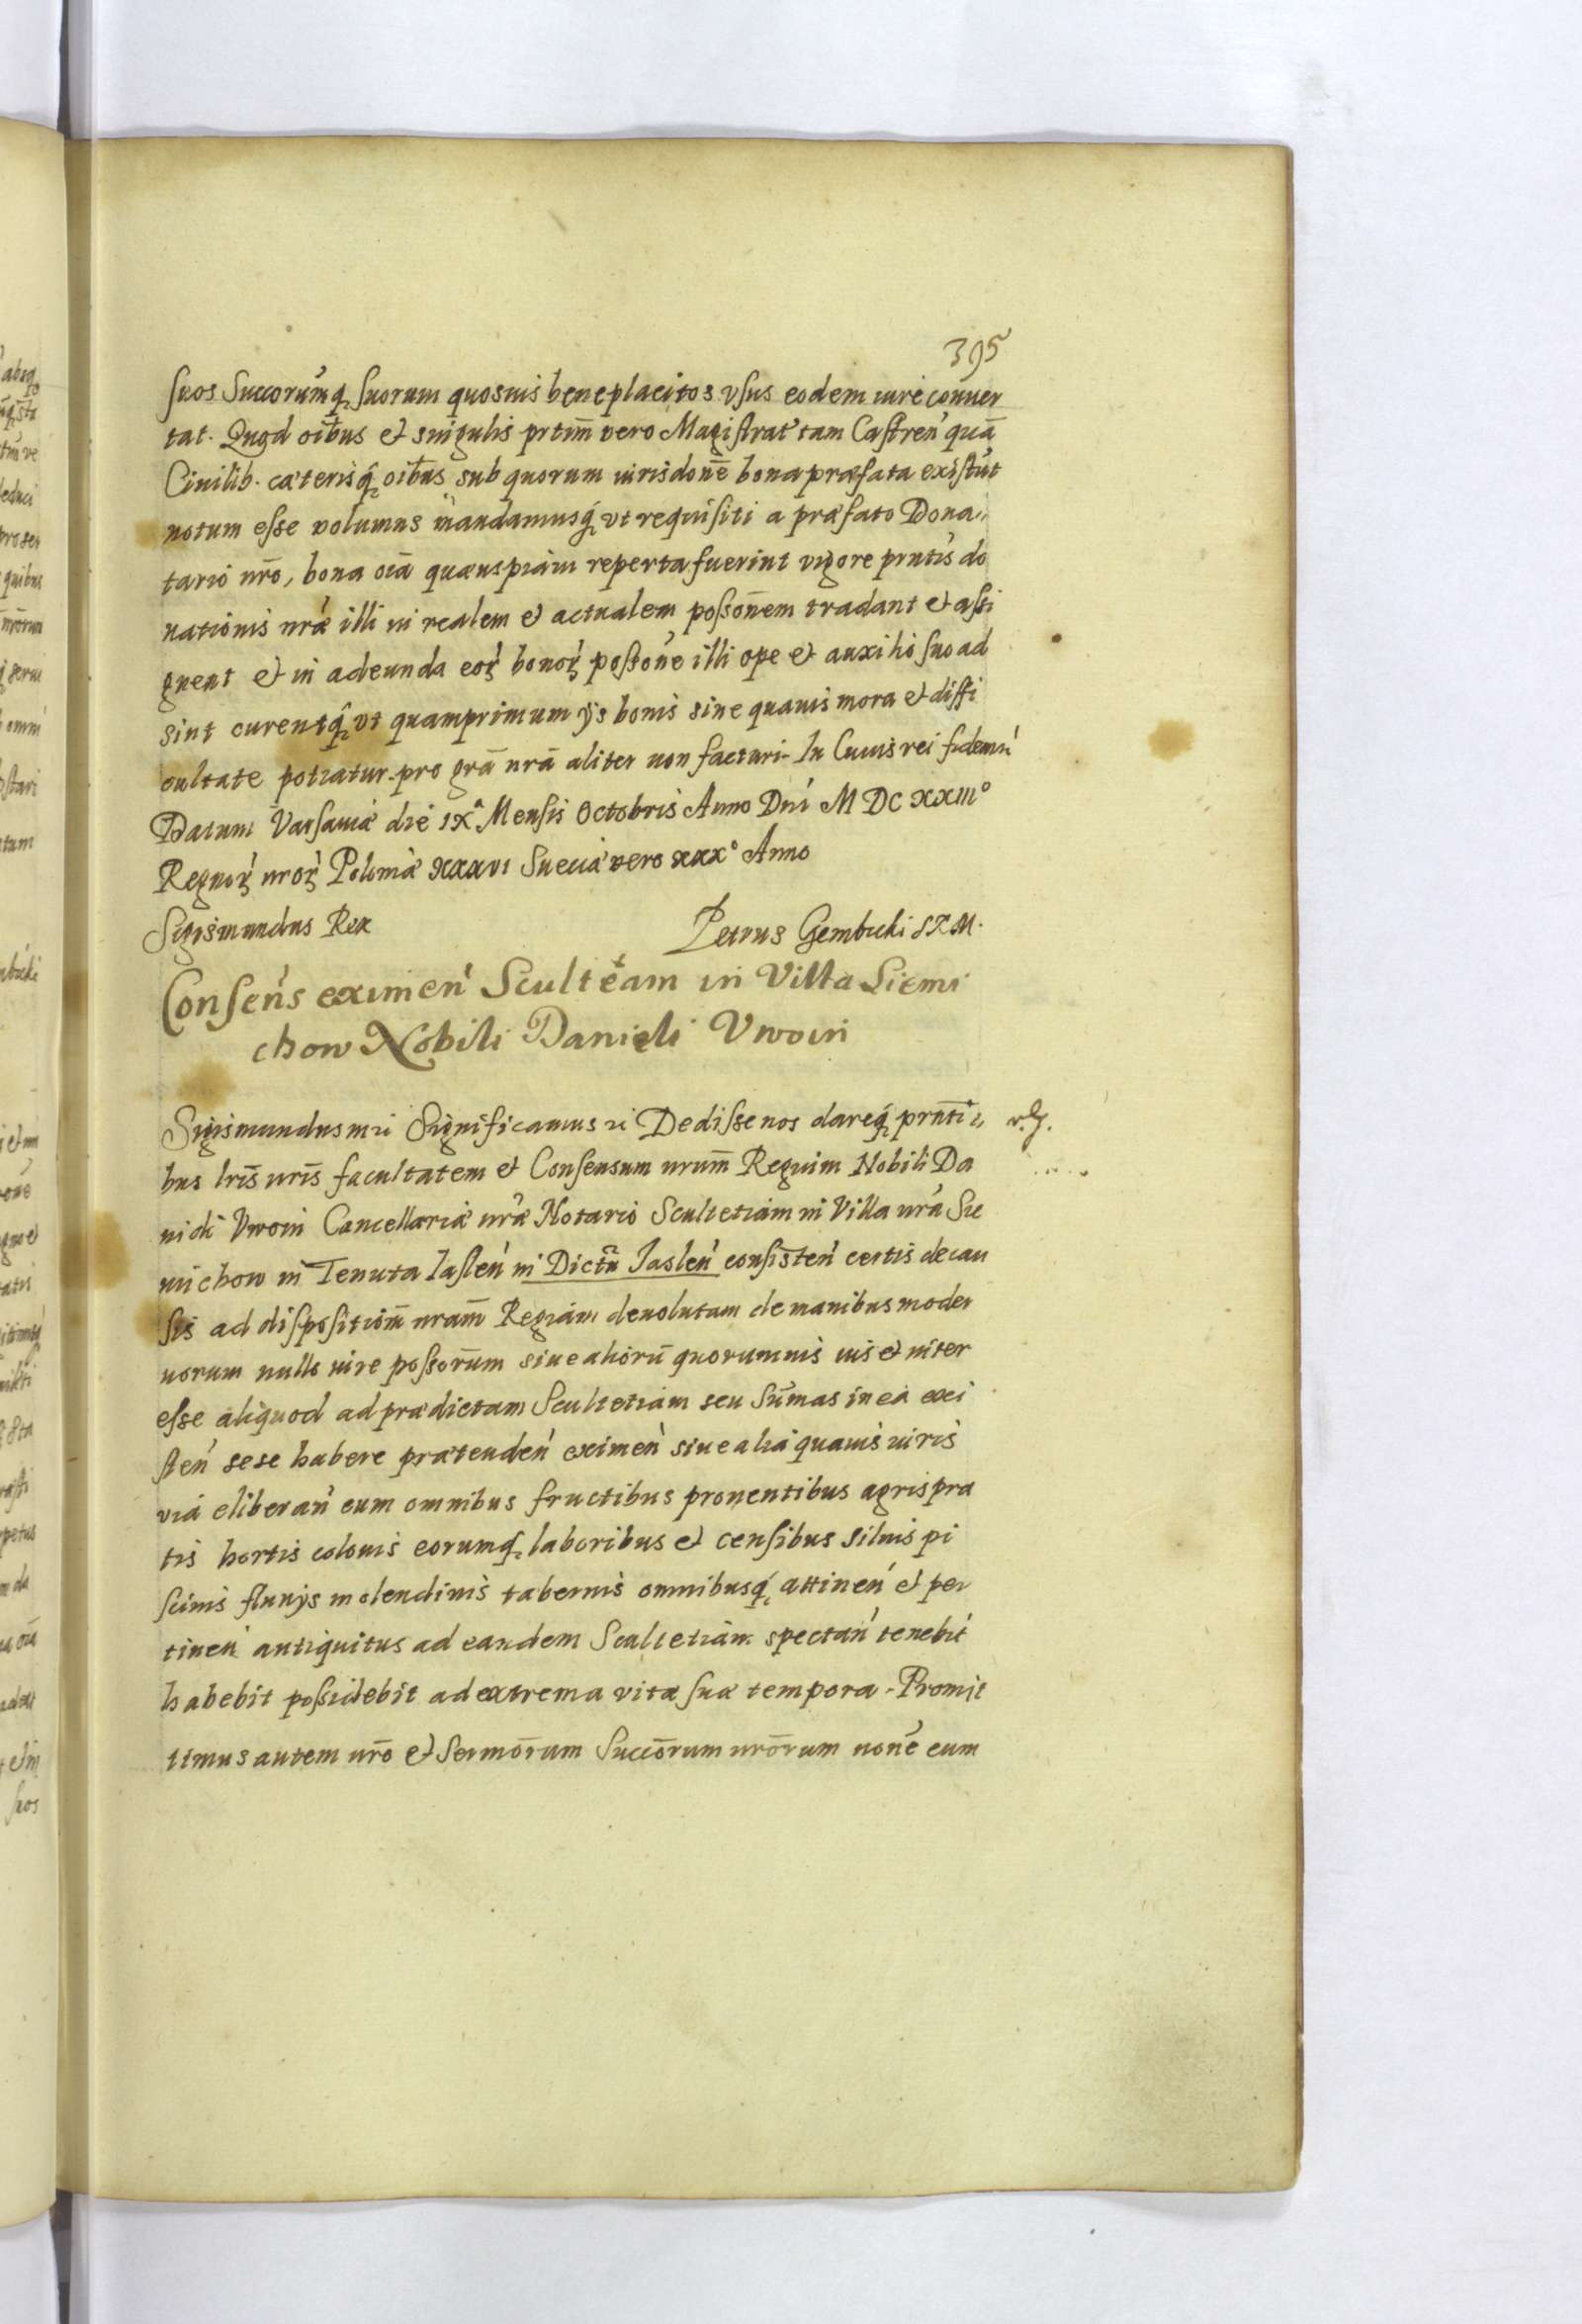 395
suos Succorumq suorum quosuis beneplacitos vsus eodem iure conuer
tat. Quod oibus et singulis prtim vero Magistrat' tam Castren' quā
Ciuilib. cæterisq oibus sub quorum iurisdone bona præfata existūt
notum esse volumus mandamusq vt requisiti a præfato Dona„
tario nro, bona oia quæuspiam reperta fuerint vigore prntis do
nationis nræ illi in realem et actualem possonem tradant et assi
gnent et in adeunda eoꝝ bonoꝝ possone illi ope et auxilio suo ad
sint curentq vt quamprimum ijs bonis sine quauis mora et diffi
cultate potiatur. pro grā nrā aliter non facturi. In Cuius rei fidem
Datum Varsauiæ die IXa Mensis Octobris Anno Dni M DC XXIIIo
Regnoꝝ nroꝝ Poloniæ XXXVI Sueciæ vero XXXo Anno
Sigismundus Rex Petrus Gembicki SRM.
Consens eximen' Scultetiam in Villa Siemi
chow Nobili Danieli Vwoin
Sigismundus Significamus Dedisse nos dareq prnti„
bus lris nris facultatem et Consensum nrum Regium Nobili Da
nieli Vwoin Cancellariæ nræ Notario Scultetiam in Villa nra Sie
michow in Tenuta Iaslen' in Dictu Iaslen' consisten' certis de cau
sis ad dispositiom nram Regiam deuolutam de manibus moder
norum nullo iure possorum siue aliorū quorumuis ius et inter
esse aliquod ad prædictam Scultetiam seu Sumas in ea exi
sten' sese habere prætenden' eximen' siue alia quauis iuris
via eliberan' cum omnibus fructibus prouentibus agris pra
tis hortis colonis eorumq laboribus et censibus siluis pi
scinis fluuijs molendinis tabernis omnibusq attinen' et per
tinen' antiquitus ad eandem Scultetiam spectan' tenebit
habebit possidebit ad extrema vitæ suæ tempora. Promit
timus autem nro et Sermorum Succorum nrorum none eum